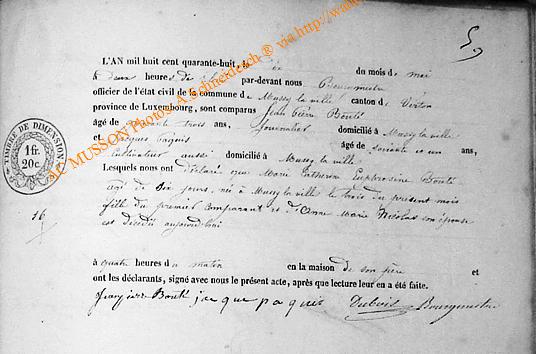 L'AN mil huit cent quarante-huit, le du mois de mai
à deux heures de par-devant nous Bourgmestre
officier de l'état civil de la commune de Mussy la ville canton de Virton
province de Luxembourg, sont comparus Jean Pierre Bouté
âgé de trois ans, Journalier domicilié à Mussy la ville
et Jacques Paquis âgé de soixante et un ans,
Cultivateur aussi domicilié à Mussy la ville
Lesquels nous ont déclaré que Marie Catherine Euphrosine Bouté
agé de Six jours, née à Mussy la ville le trois du présent mois
fille du premier Comparant et d'Anne Marie Nicolas son épouse
est décédé aujourd'hui
16
à quatre heures du matin en la maison de son père et
ont les déclarants, signé avec nous le présent acte, après que lecture leur en a été faite.
Jean pierre Bouté jacque paquis Dubois Bourgmestre
TIMBRE DE DIMENSION
1fr.
20c.
MUSSON Photos A.Schneidesch ® via http://www